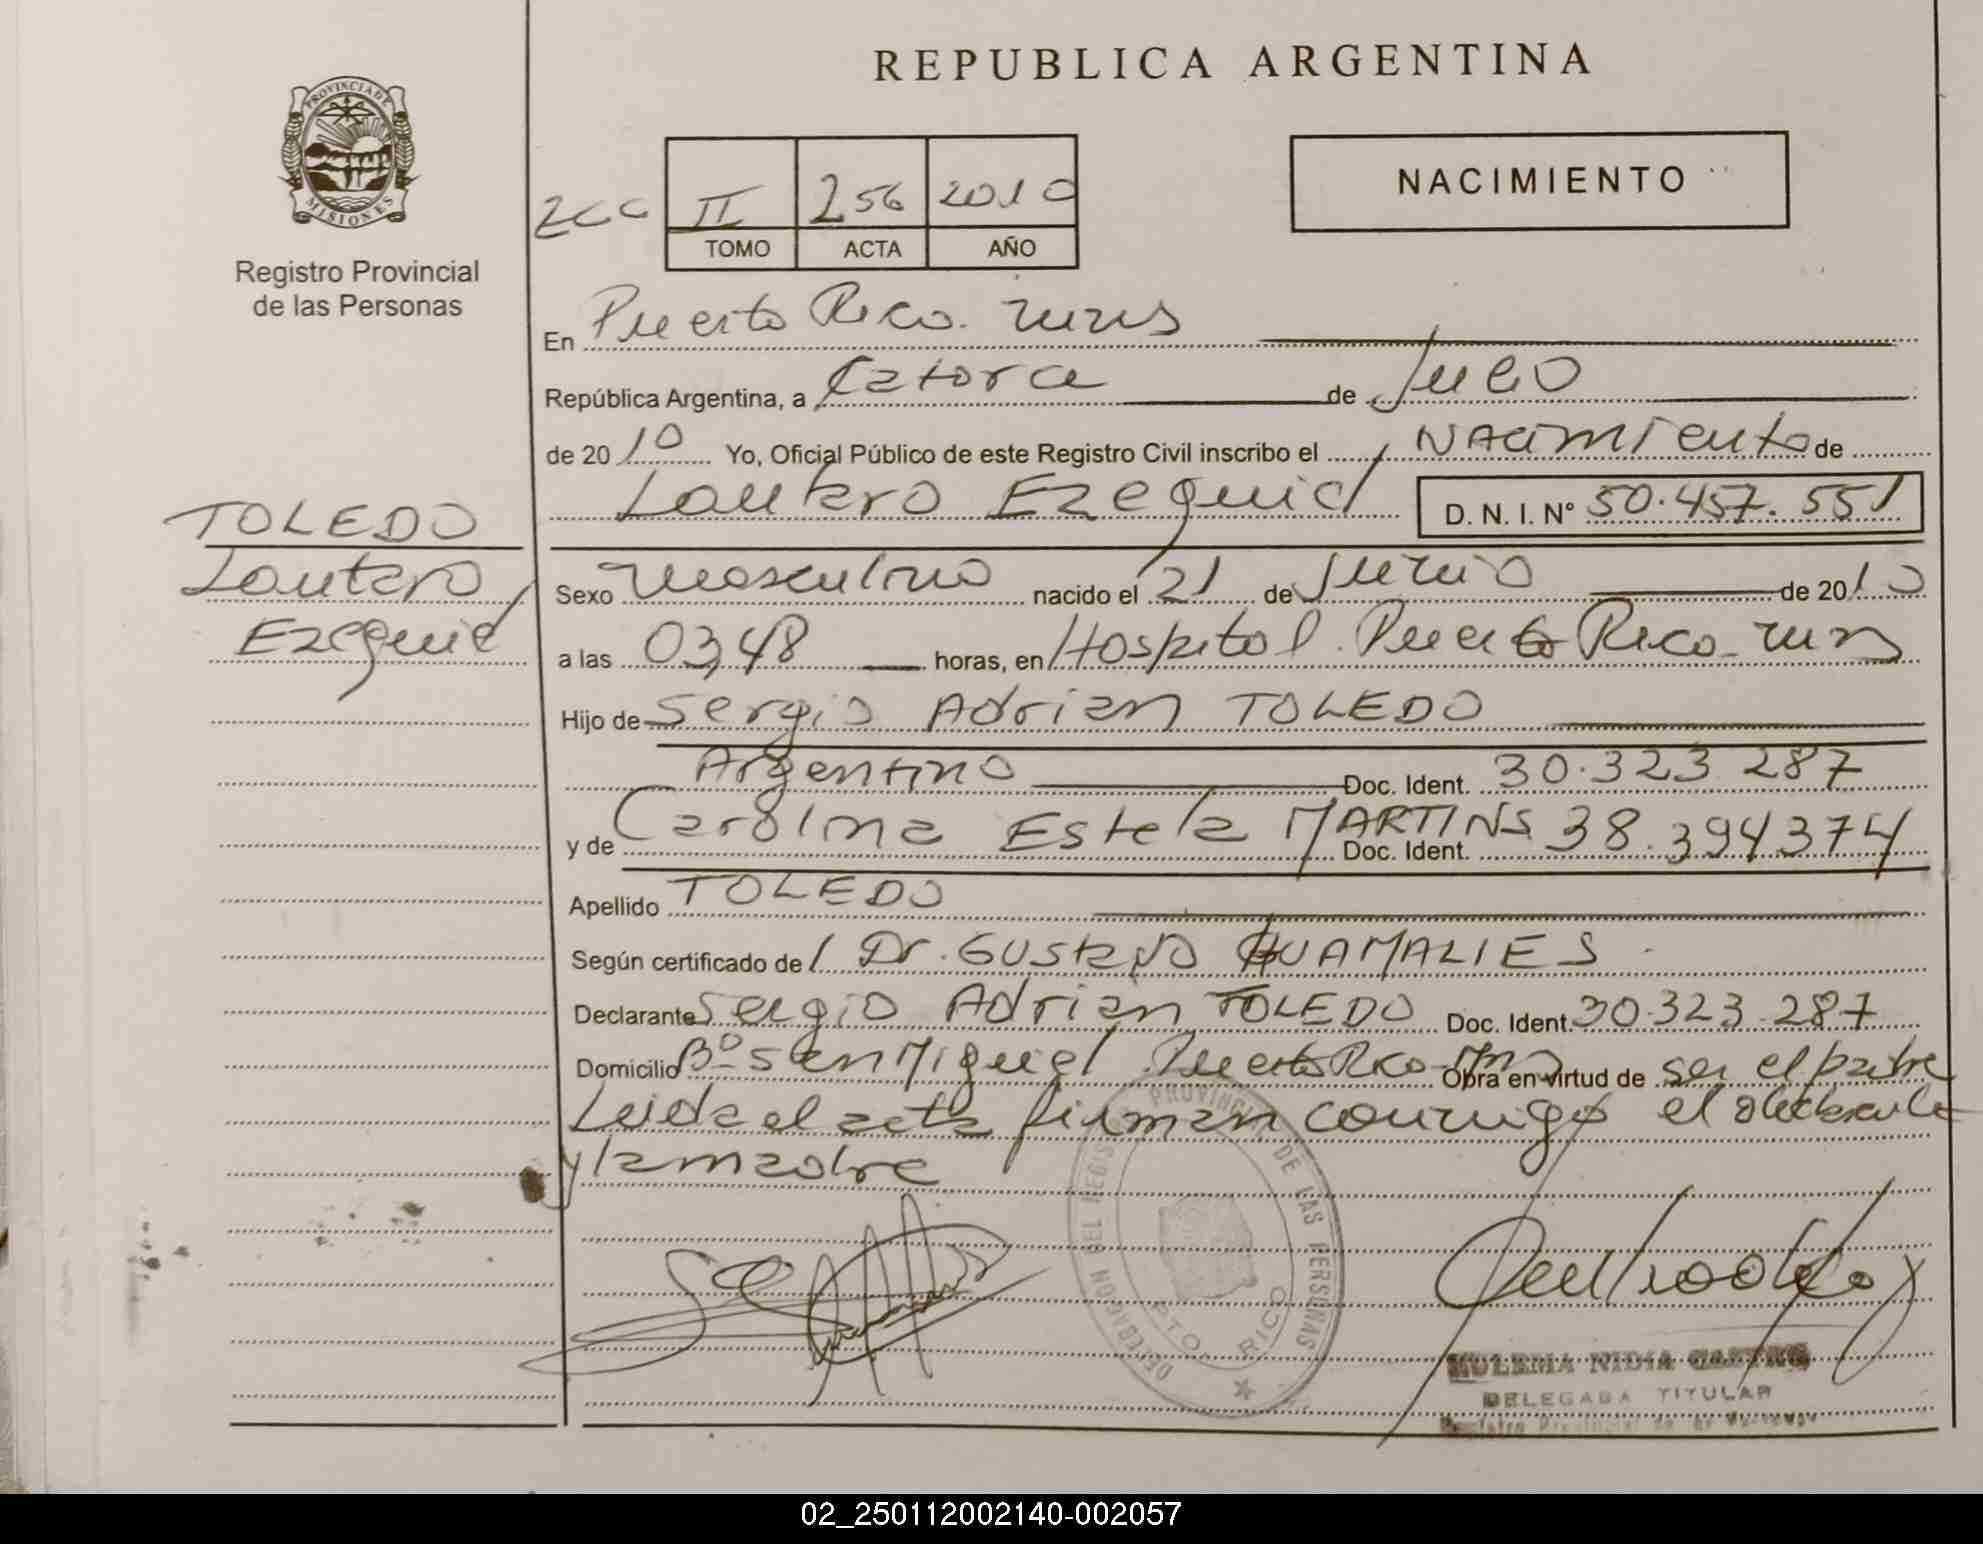 REPUBLICA ARGENTINA
PROVINCIA DE
MISIONES
Registro Provincial
de las Personas
NACIMIENTO
II 256 2010
TOMO ACTA AÑO
En Puerto Rico. Mnes
República Argentina, a Catorce de Julio
de 2010 Yo, Oficial Público de este Registro Civil inscribo el Nacimiento de
Lautaro Ezequiel D. N. I. N° 50.457.551
TOLEDO
Lautaro
Ezequiel
Sexo Masculino nacido el 21 de Junio de 2010
a las 03,48 horas, en Hospital. Puerto Rico. Mnes
Hijo de Sergio Adrian TOLEDO
Argentino Doc. Ident. 30.323.287
y de Carolina Estela MARTINS Doc. Ident. 38.394374
Apellido TOLEDO
Según certificado del Dr. Gustavo GUAMALIES
Declarante Sergio Adrian TOLEDO Doc. Ident 30.323.287
Domicilio Bº San Miguel Puerto Rico Mnes Obra en virtud de ser el padre
Leida el acta firman conmigo el declarante
y la madre
PROVINCIAL DE LAS PERSONAS
PTO. RICO
ZULEMA NIDIA CASTRO
DELEGADA TITULAR
Registro Provincial de las Personas
02_250112002140-002057